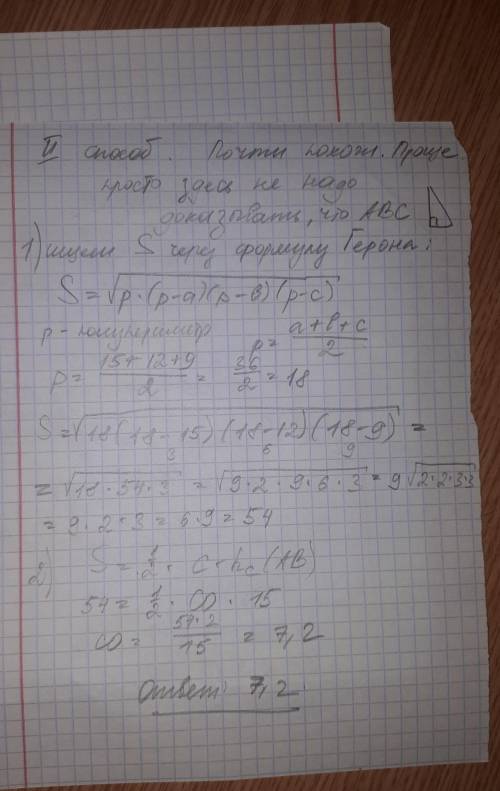 II способ. Почти похож. Проще.
просто здесь не надо
доказывать, что ABC
1) ищем S через формулу Герона:
S = √p·(p-a)(p-в)(p-c)
p - полупериметр p = a+в+c/2
p = 15+12+9/2 = 36/2 = 18
S = √18(18-15)(18-12)(18-9) =
3 6 9
= √18·54·3 = √9·2·9·6·3 = 9√2·2·3·3
= 9·2·3 = 6·9 = 54
2) S = 1/2 · c · hc (AB)
54 = 1/2 · CD · 15
CD = 54·2/15 = 7,2
Ответ: 7,2